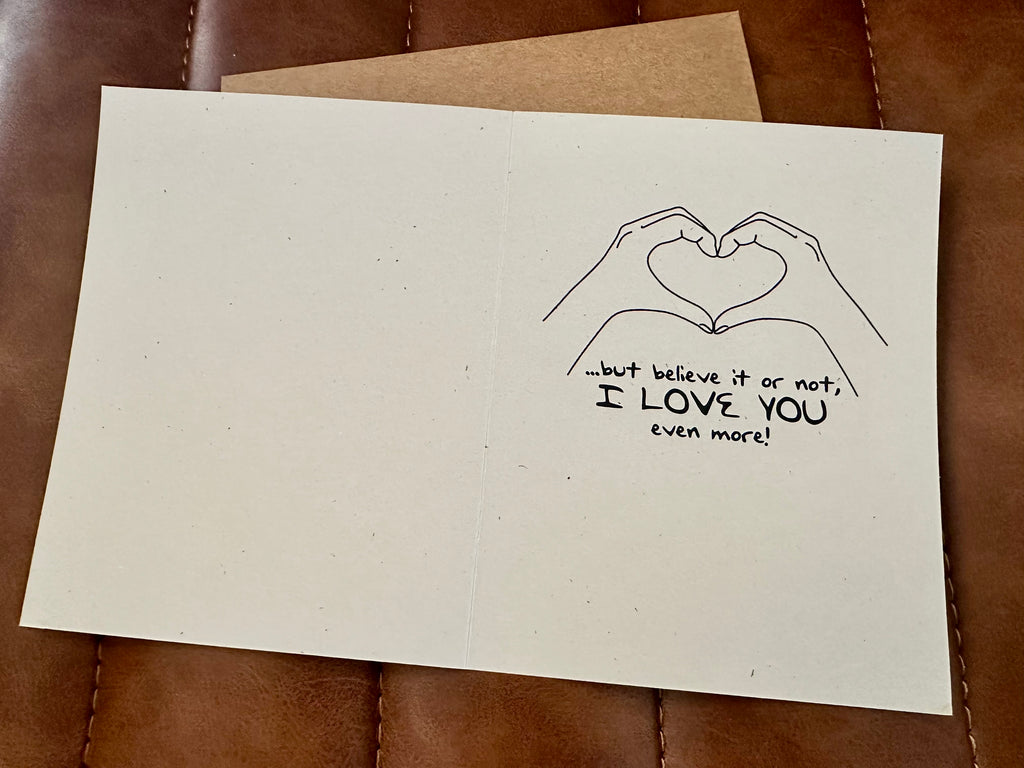 ...but believe it or not,
I LOVE YOU
even more!